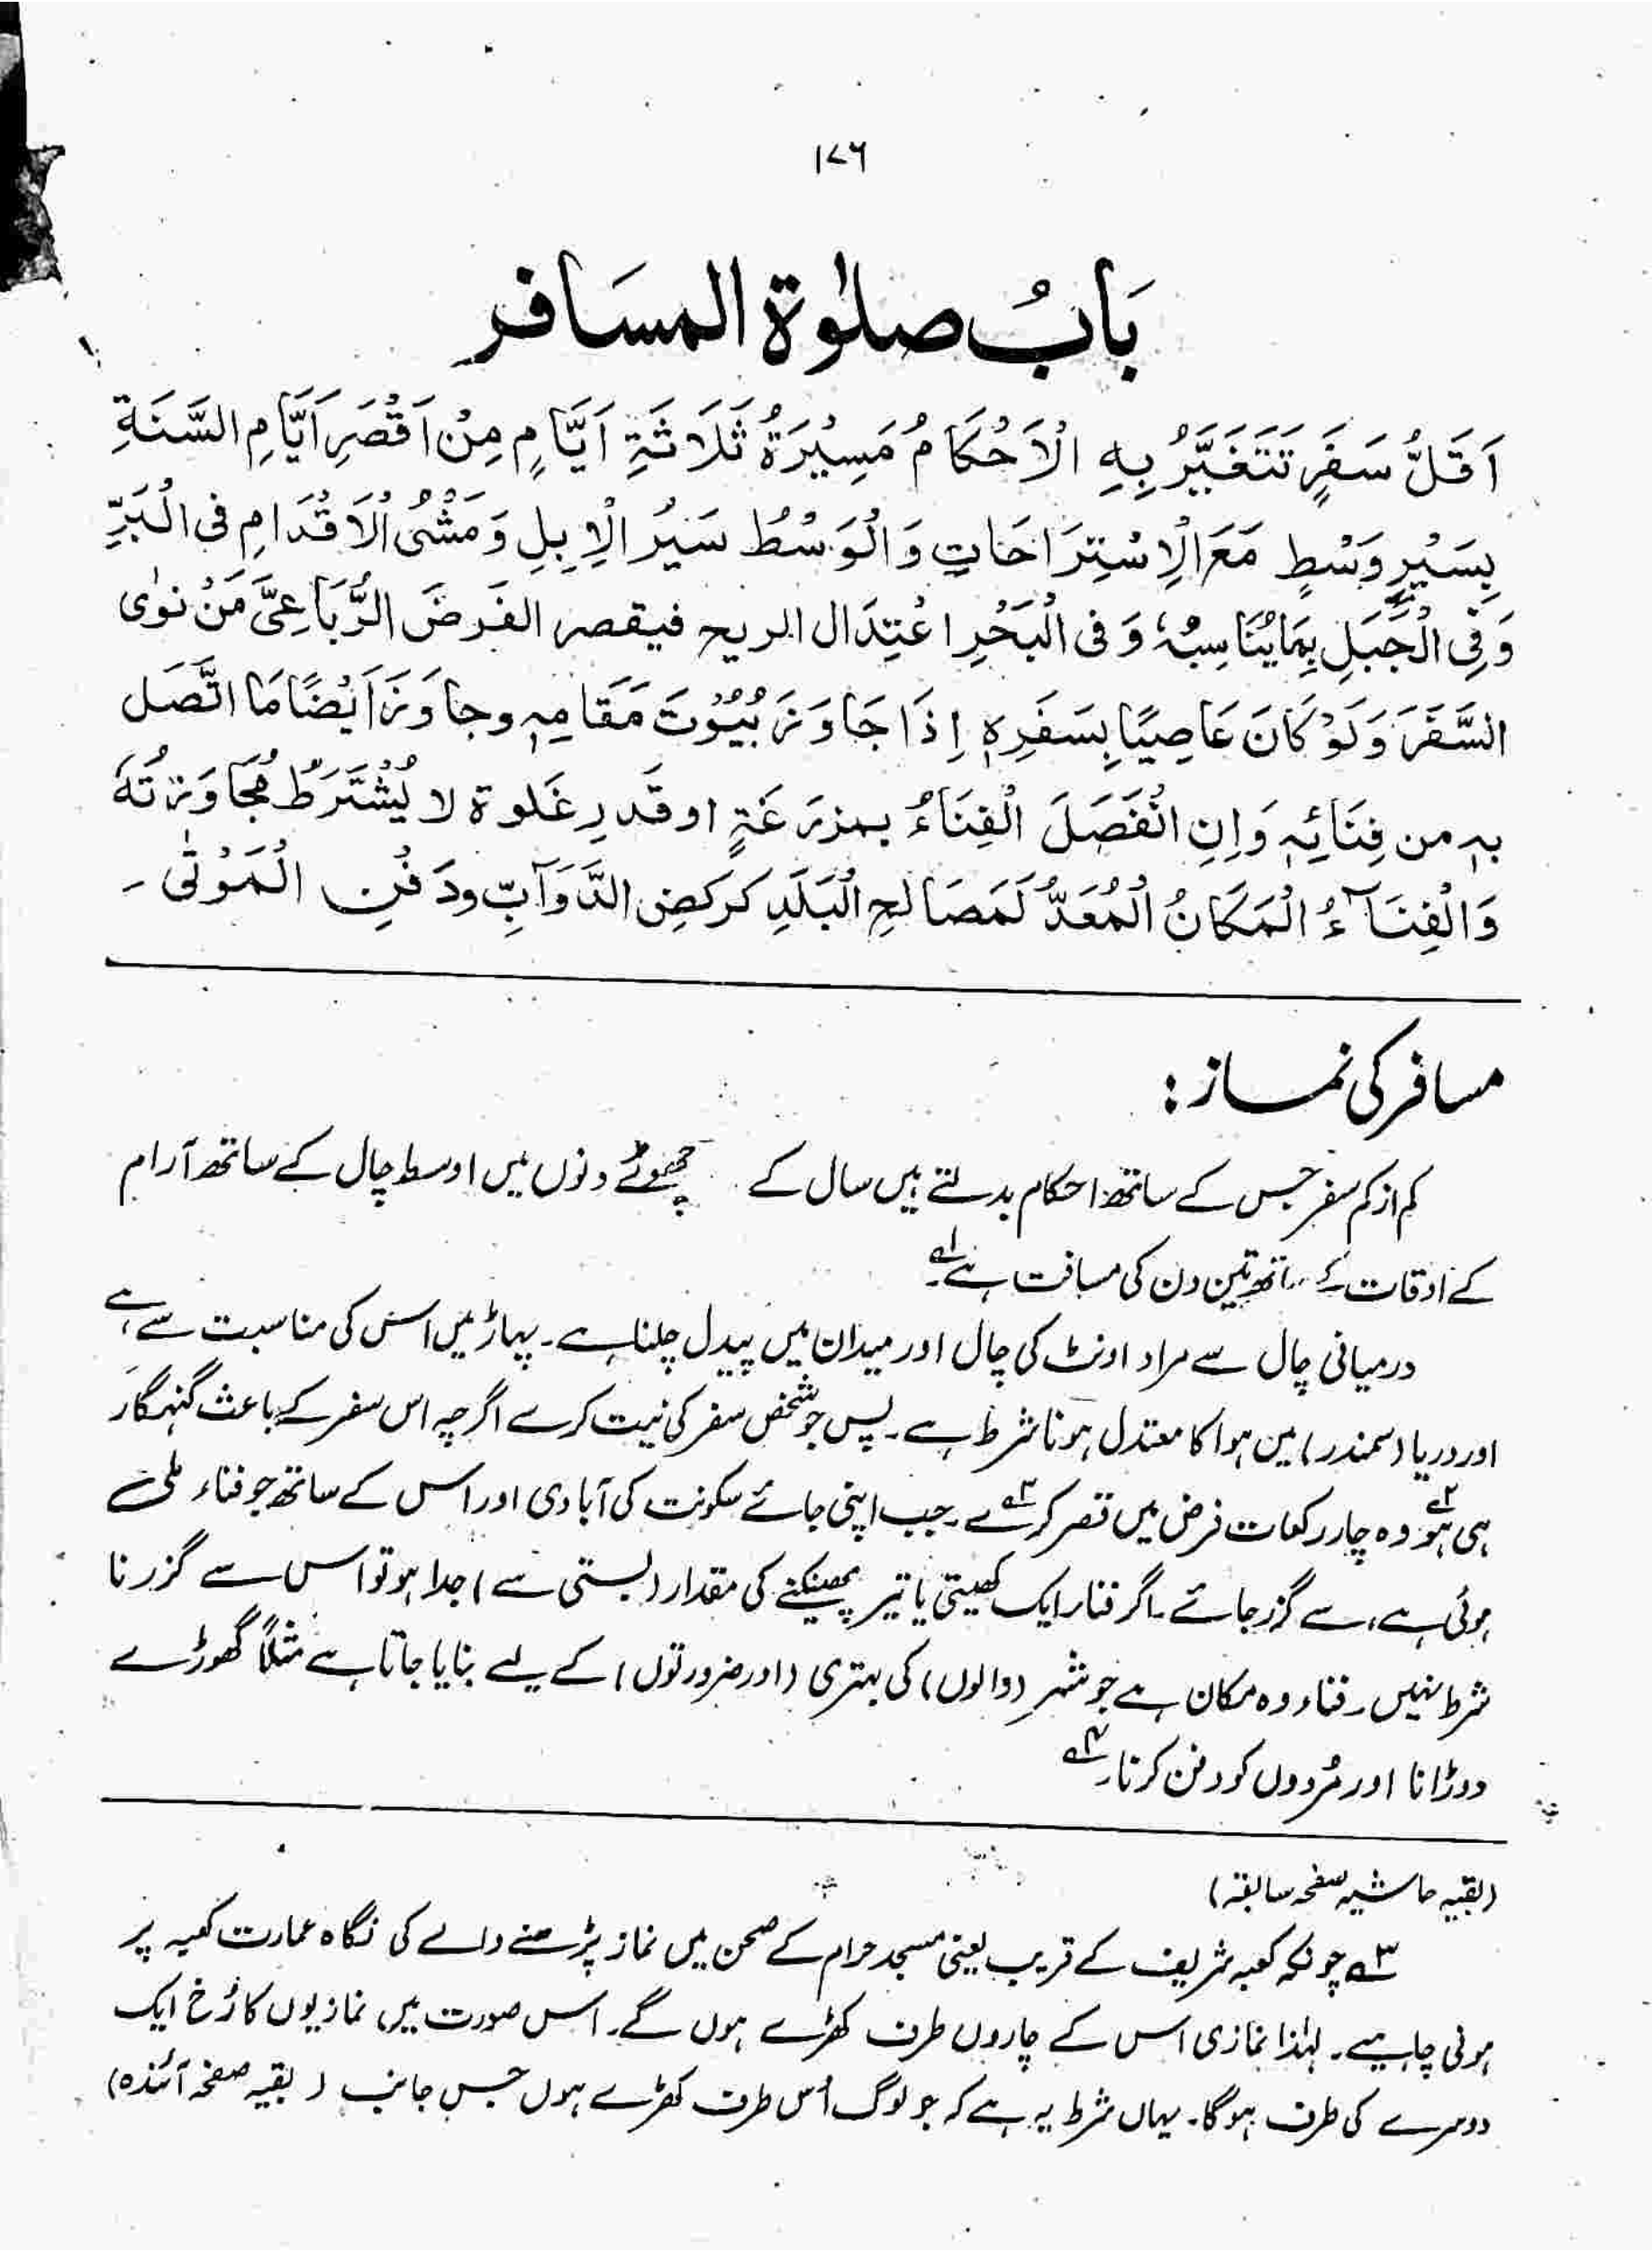 ۱۷۶
بَابُ صلوٰة المسَافر
اَقَلُّ سَفَرٍ تَتَغَيَّرُ بِهِ الْاَحْكَامُ مَسِيْرَةُ ثَلَاثَةِ اَيَّامٍ مِنْ اَقْصَرِ اَيَّامِ السَّنَةِ
بِسَيْرٍ وَسْطٍ مَعَ الْاِسْتِرَاحَاتِ وَالْوَسْطُ سَيْرُ الْاِبِلِ وَمَشْیُ الْاَقْدَامِ فی الْبَرِّ
وَفِی الْجَبَلِ بِمَا يُنَاسِبُهٗ وَفی الْبَحْرِ اعْتِدَال الريح فيقصر الفَرضَ الرُّبَاعِیَّ مَنْ نوٰی
السَّفَرَ وَلَوْ كَانَ عَاصِيًا بِسَفَرِهٖ اِذَا جَاوَزَ بُيُوْتَ مَقَامِهٖ وجاوَزَ اَيْضًا مَا اتَّصَل
بهٖ من فِنَائِهٖ وَاِنِ انْفَصَلَ الْفِنَاءُ بمزرَعَةٍ او قَدرِ غَلوة لا يُشْتَرَطُ مُجَاوَزتُهٗ
وَالْفِنَآءُ الْمَكَانُ الْمُعَدُّ لَمَصَالحِ الْبَلَدِ كركضِ الدَّوَآبِّ ودَفْنِ الْمَوْتٰی ۔
مسافر کی نماز :
کم از کم سفر جس کے ساتھ احکام بدلتے ہیں سال کے چھوٹے دنوں میں اوسط چال کے ساتھ آرام
کے اوقات کے ساتھ تین دن کی مسافت ہے۔ ؎۱
درمیانی چال سے مراد اونٹ کی چال اور میدان میں پیدل چلنا ہے۔ پہاڑ میں اس کی مناسبت سے ہے
اور دریا (سمندر) میں ہوا کا معتدل ہونا شرط ہے۔ پس جو شخص سفر کی نیت کرے اگرچہ اس سفر کے باعث گنہگار
ہی ہو ؎۲ وہ چار رکعات فرض میں قصر کرے ؎۳۔ جب اپنی جائے سکونت کی آبادی اور اس کے ساتھ جو فناء ملی
ہوئی ہے، سے گزر جائے۔ اگر فناء ایک کھیتی یا تیر پھینکنے کی مقدار (بستی سے) جدا ہو تو اس سے گزرنا
شرط نہیں۔ فناء وہ مکان ہے جو شہر (والوں) کی بہتری (اور ضرورتوں) کے لیے بنایا جاتا ہے مثلاً گھوڑے
دوڑانا اور مُردوں کو دفن کرنا۔ ؎۴
(بقیہ حاشیہ صفحہ سابقہ)
؎۳ چونکہ کعبہ شریف کے قریب یعنی مسجد حرام کے صحن میں نماز پڑھنے والے کی نگاہ عمارت کعبہ پر
ہونی چاہیے۔ لہٰذا نمازی اس کے چاروں طرف کھڑے ہوں گے۔ اس صورت میں نمازیوں کا رُخ ایک
دوسرے کی طرف ہوگا۔ یہاں شرط یہ ہے کہ جو لوگ اُس طرف کھڑے ہوں جس جانب (بقیہ صفحہ آئندہ)